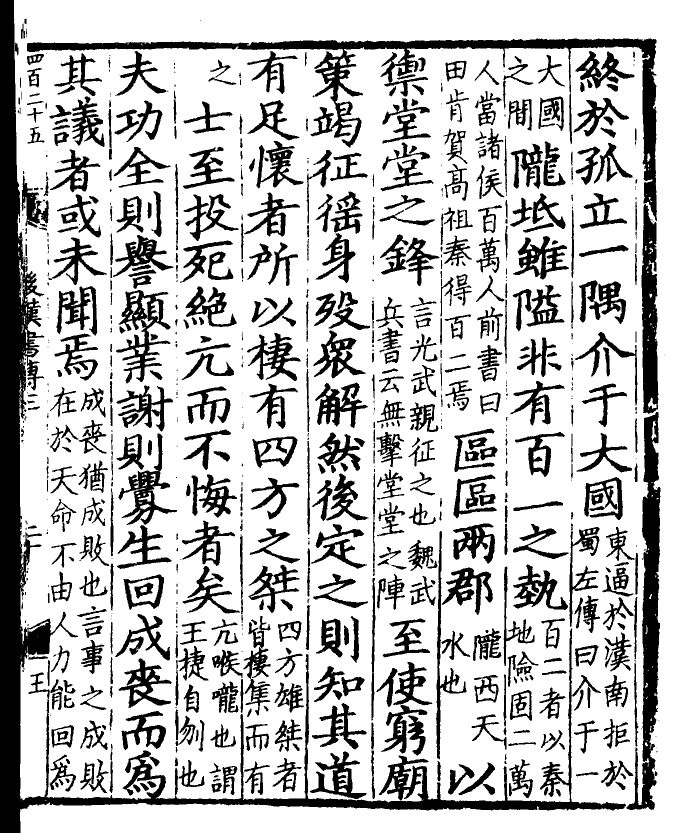 終於孤立一隅介于大國東逼於漢南拒於蜀左傳曰介于一
大國之間隴坻雖隘非有百一之埶百二者以秦地險固二萬
人當諸侯百萬人前書曰田肯賀高祖秦得百二焉區區兩郡隴西天水也以
禦堂堂之鋒言光武親征之也魏武兵書云無擊堂堂之陣至使窮廟
策竭征徭身歿衆解然後定之則知其道
有足懷者所以棲有四方之桀四方雄桀者皆棲集而有
之士至投死絶亢而不悔者矣亢喉嚨也謂王捷自刎也
夫功全則譽顯業謝則釁生回成喪而爲
其議者或未聞焉成喪猶成敗也言事之成敗在於天命不由人力能回爲
四百二十五 後漢書傳三 二十 王